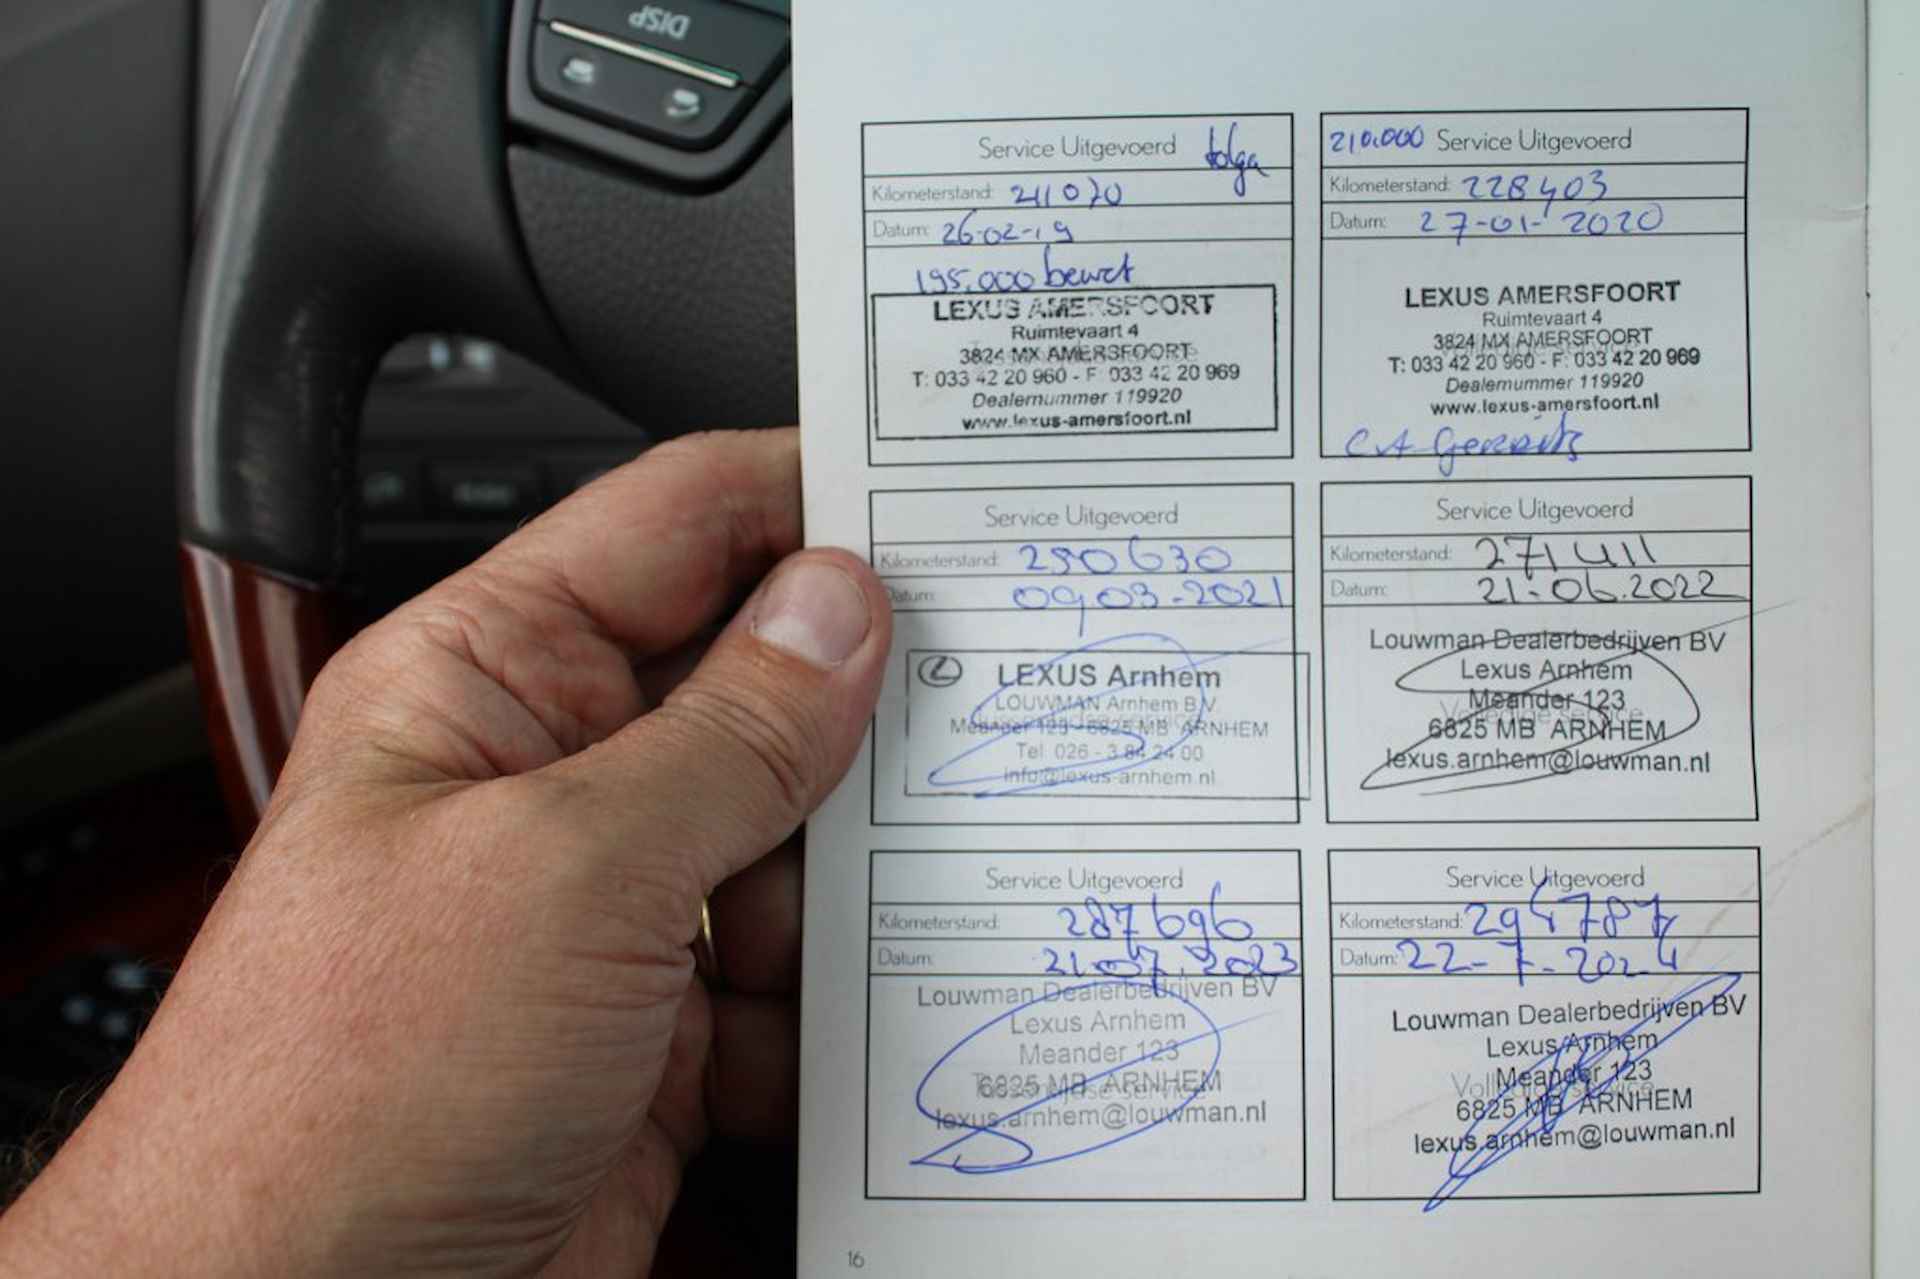 DISP
Service Uitgevoerd tolga
Kilometerstand: 211070
Datum: 26-02-19
195.000 beurt
LEXUS AMERSFOORT
Ruimtevaart 4
3824 MX AMERSFOORT
T: 033 42 20 960 - F: 033 42 20 969
Dealernummer 119920
www.lexus-amersfoort.nl
210.000 Service Uitgevoerd
Kilometerstand: 228403
Datum: 27-01-2020
LEXUS AMERSFOORT
Ruimtevaart 4
3824 MX AMERSFOORT
T: 033 42 20 960 - F: 033 42 20 969
Dealernummer 119920
www.lexus-amersfoort.nl
Service Uitgevoerd
Kilometerstand: 250630
Datum: 09-03-2021
LEXUS Arnhem
LOUWMAN Arnhem B.V.
Meander 123 - 6825 MB ARNHEM
Tel. 026 - 3 84 24 00
info@lexus-arnhem.nl
Service Uitgevoerd
Kilometerstand: 271411
Datum: 21-06.2022
Louwman Dealerbedrijven BV
Lexus Arnhem
Meander 123
Volledige service
6825 MB ARNHEM
lexus.arnhem@louwman.nl
Service Uitgevoerd
Kilometerstand: 287696
Datum: 21.07.2023
Louwman Dealerbedrijven BV
Lexus Arnhem
Meander 123
6825 MB ARNHEM
Tussentijdse service
lexus.arnhem@louwman.nl
Service Uitgevoerd
Kilometerstand: 294787
Datum: 22-7-2024
Louwman Dealerbedrijven BV
Lexus Arnhem
Meander 123
Volledige service
6825 MB ARNHEM
lexus.arnhem@louwman.nl
16